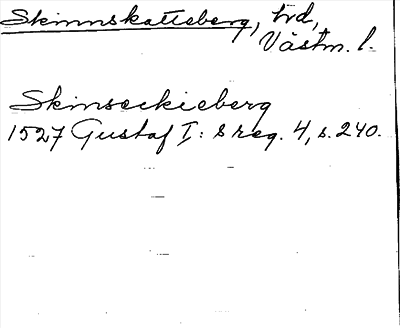 Skinnskatteberg, trd,
Västm. l.
Skinseckieberg
1527 Gustaf I: s reg. 4, s. 240.